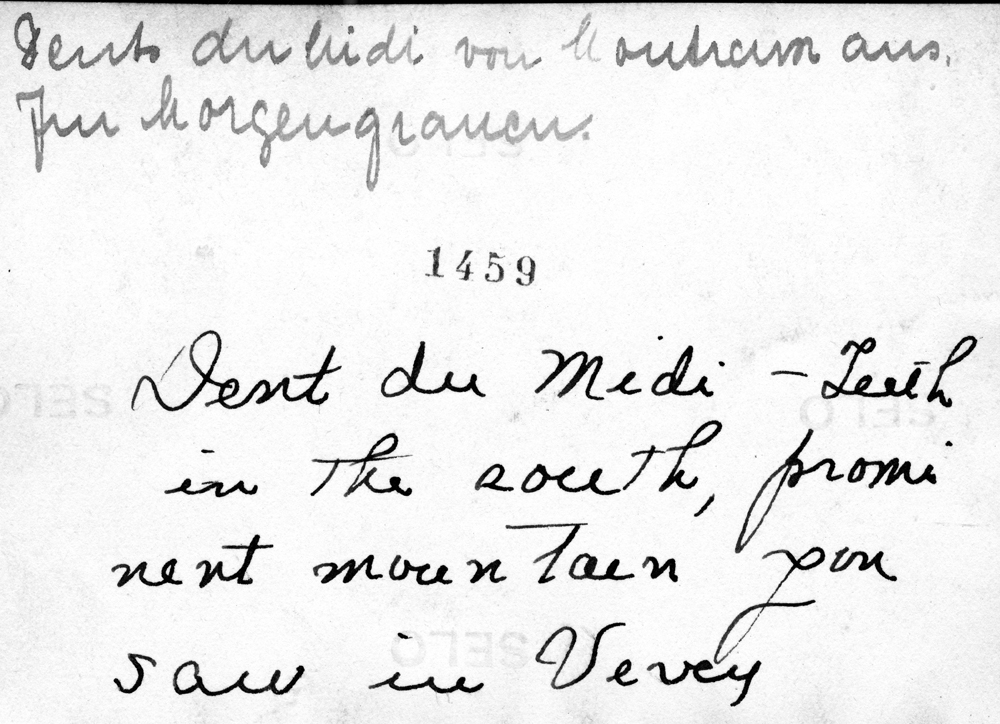 Dents du Midi von Montreux aus.
Im Morgengrauen.
1459
Dent du Midi - Teeth
in the south, promi
nent mountain you
saw in Vevey
SELO
SELO
SELO
SELO